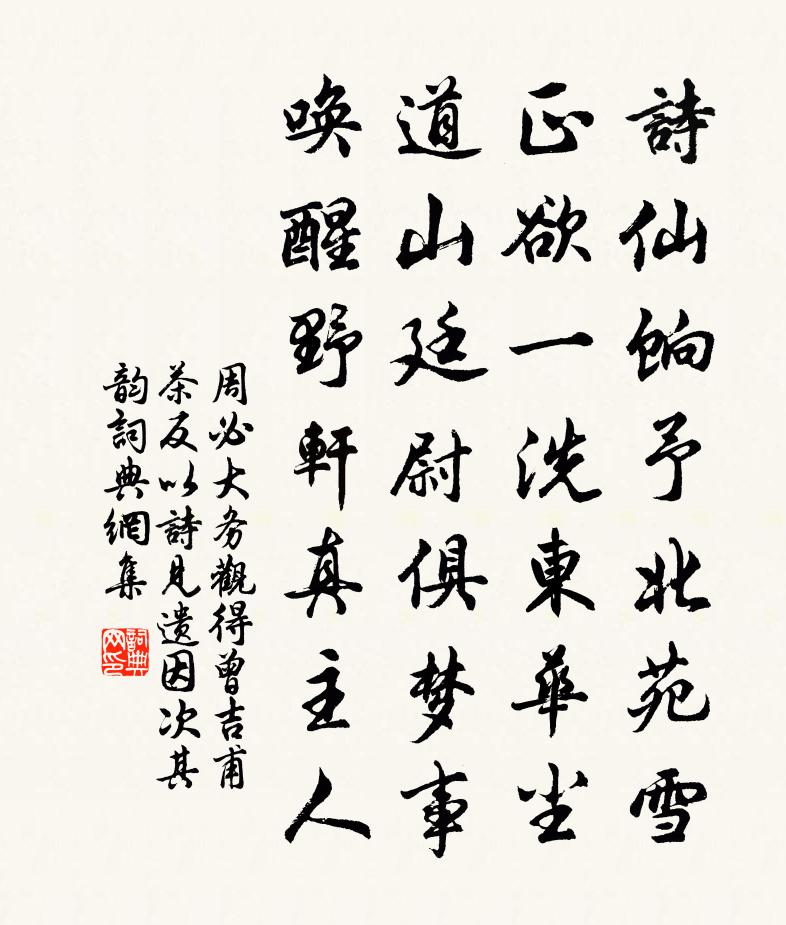 詩仙餉予北苑雪
正欲一洗東華尘
道山廷尉俱梦事
喚醒野軒真主人
周必大务觀得曾吉甫
茶反以詩見遗因次其
韵詞典網集
詞典网印